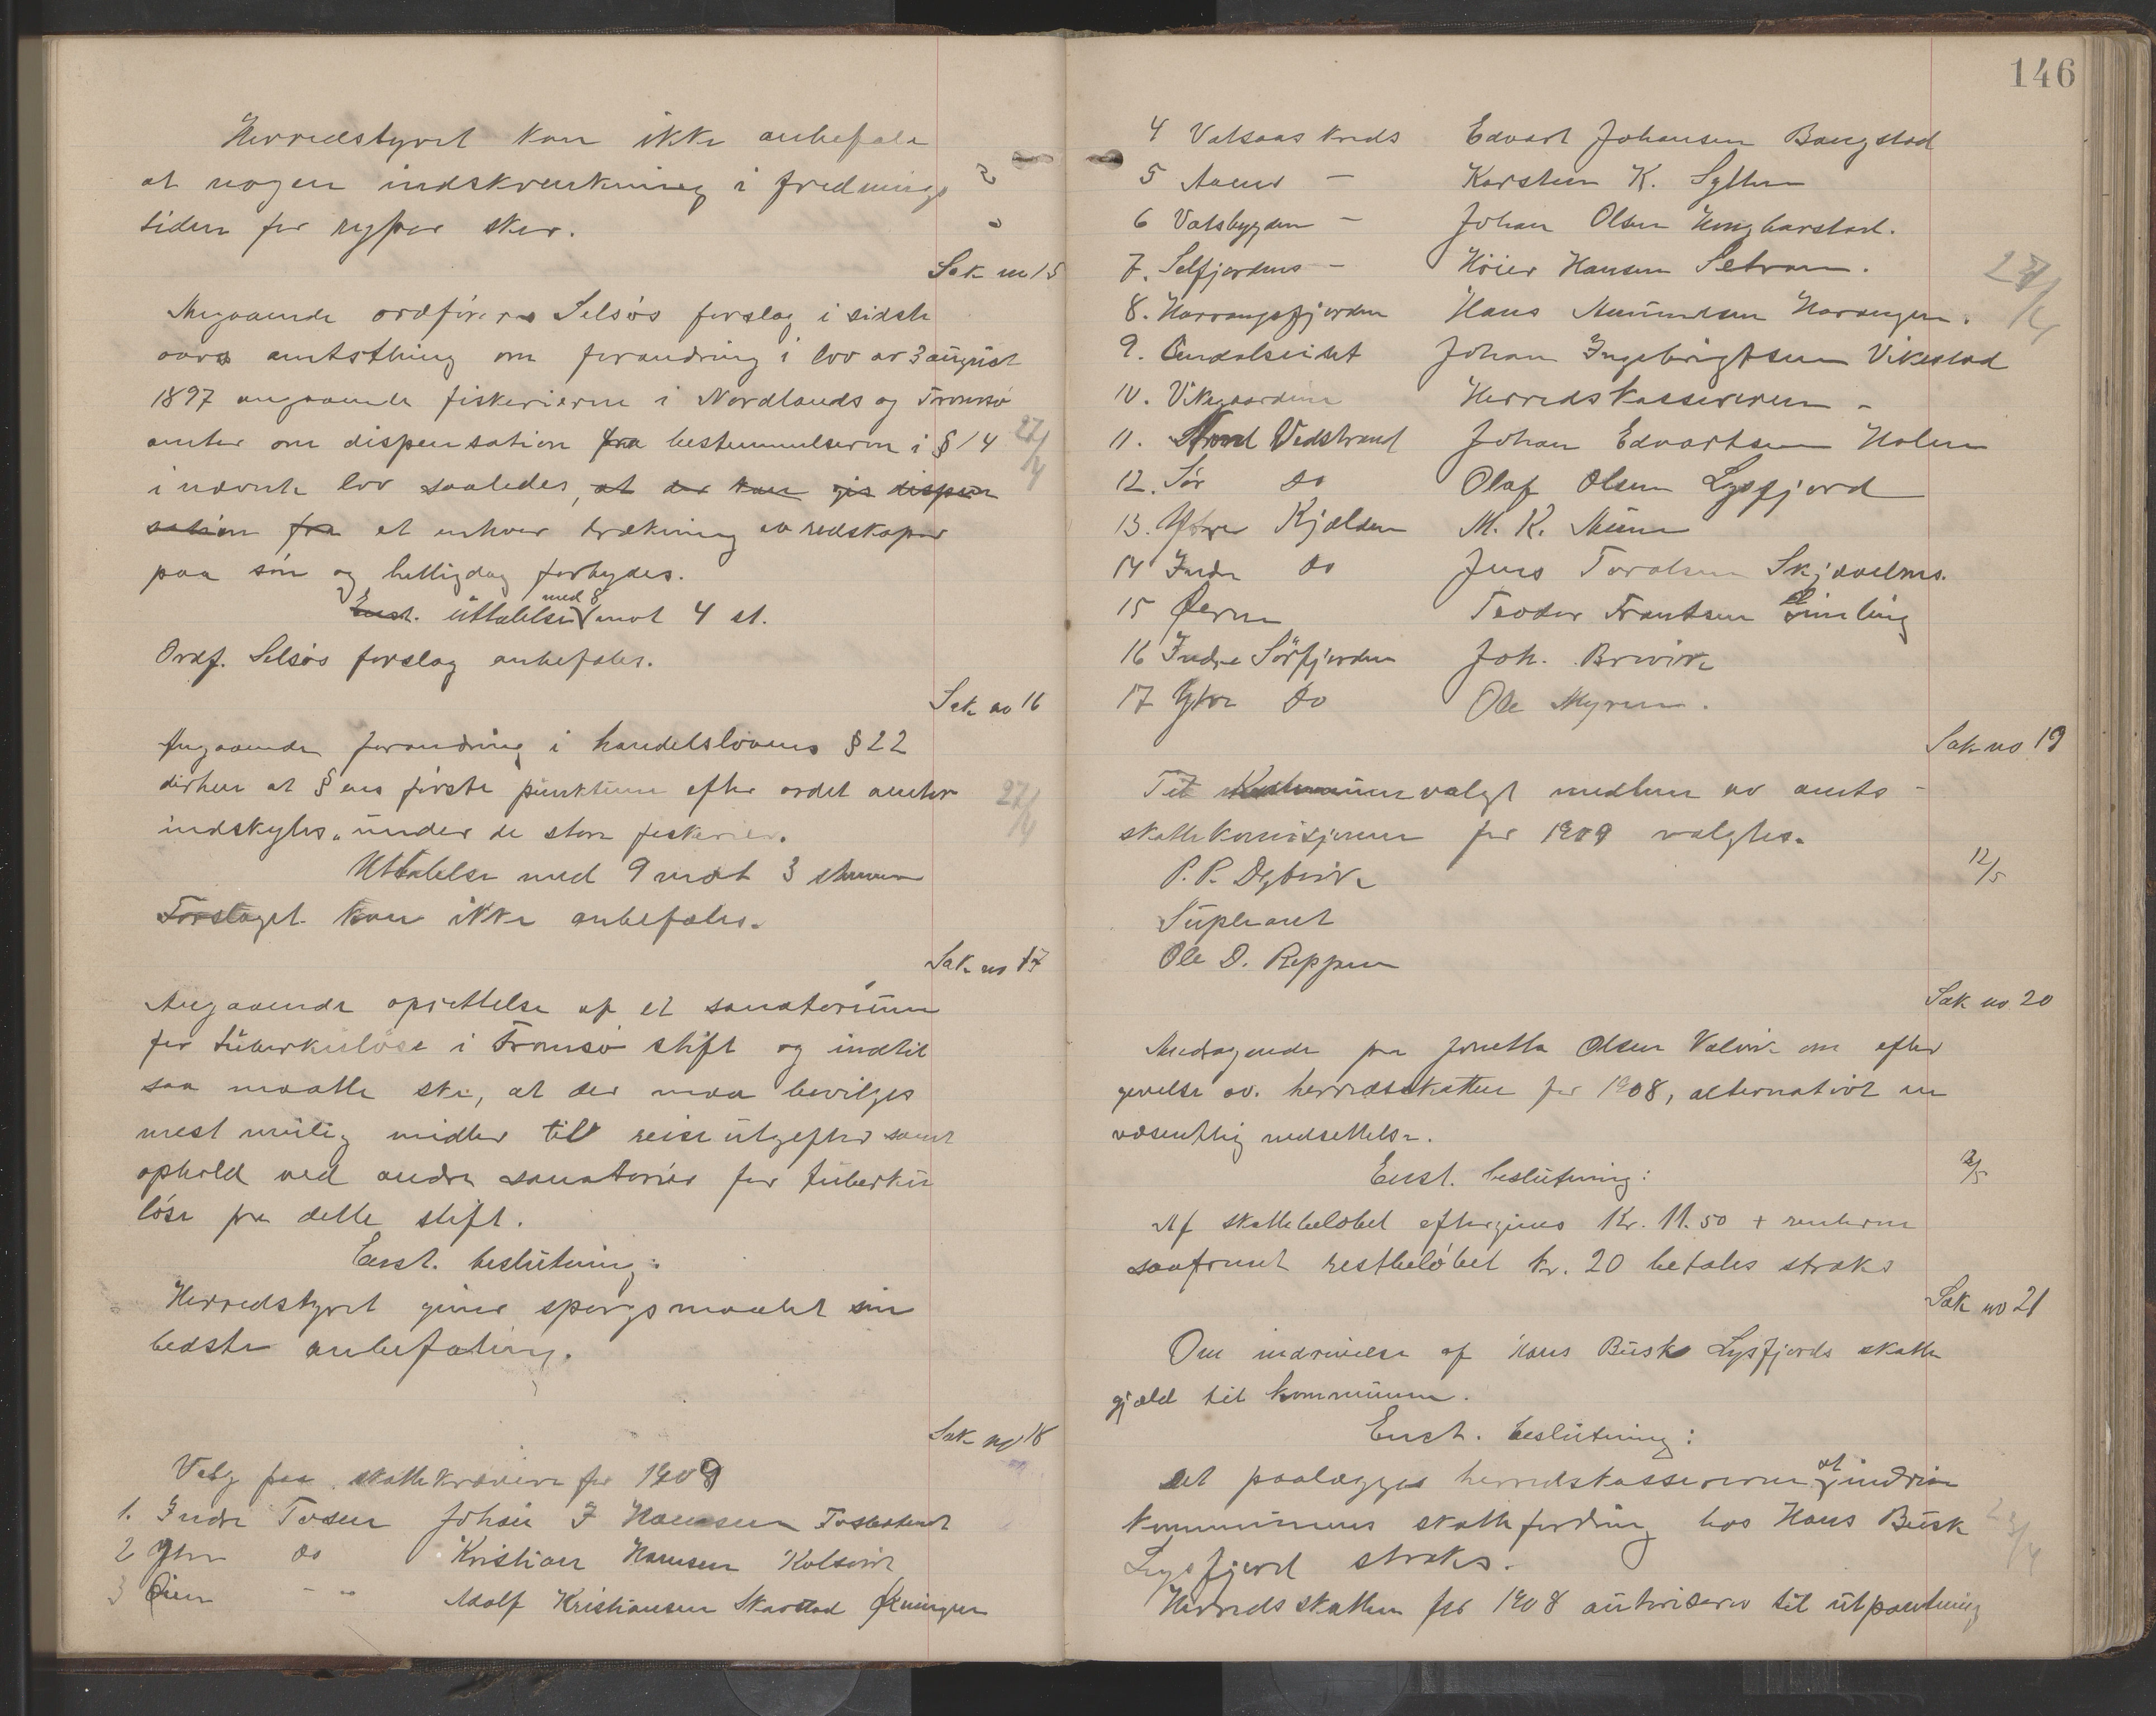 Herredstyret kan ikke anbefale
at nogen indskrænkning i frednings
tiden for ryper sker.
Sak no 15
Angaaende ordförer Selsös forslag i sidste
aars amtsthing om forandring i lov av 3 august
1897 angaaende fiskerierne i Nordlands og Tromsö
amter om dispensation fra bestemmelserne i § 14
27/4
i nævnte lov saaledes, at der kan gis dispen
sation fra at enhver trækning av redskaper
paa sön og helligdag forbydes.
Enst. uttalelse med 8 mot 4 st.
Ordf. Selsös forslag anbefales.
Sak no 16
Angaaende forandring i handelslovens § 22
derhen at § ens förste punktum efter ordet amter
27/4
indskytes "under de store fiskerier.
Uttalelse med 9 mot 3 stemmer
Forslaget kan ikke anbefales.
Sak no 17
Angaaende oprettelse af et sanatorium
for tuberkulöse i Tromsö stift og indtil
saa maatte ske, at der maa bevilges
mest mulig midler til reiseutgifter samt
ophold ved andre sanatorier for tuberku
löse fra dette stift.
Enst. beslutning:
Herredstyret giver spörgsmaalet sin
bedste anbefaling.
Sak no 18
Valg paa skattekrævere for 1909
1. Indre Tosen Johan J Hansen
2 Ytre do Kristian Hansen Kolsvik
3 Öien - " Adolf Kristiansen Skarstad
146
4 Vatsaas kreds Edvart Johansen Bangstad
5 Aunes - Karsten K. Sylten
6 Vatsbygden - Johan Olsen
7. Selfjordens - Höier Hansen
27/4
8. Harrangsfjorden Hans Harangen.
9. Johan Ingebrigtsen Vikestad
10. Vikgaardene Herredskassereren -
11. Nord Vedstrand Johan Edvartsen Holm
12. Sör do Olaf Olsen Lysfjord
13. Ytre Kjælden M. K. Moen
14 Indre do Jens Toralsen
15 Öerne Teodor Frantsen
16 Indre Sörfjorden Joh. Brevik
17 Ytre do Ole Myren.
Sak no 19
Til valgt medlem av amts-
skattekomisjonen for 1909 valgtes.
12/5
P. P. Dybvik
Supleant
Ole D. Reppen
Sak no 20
Andragende fra Jonetta Olsen Valvik om efter
givelse av. herredsskatten for 1908, alternativt en
væsentlig nedsettelse.
12/5
Enst. beslutning:
Af skattebelöbet eftergives Kr. 11.50 + renterne
saafremt restbelöbet kr. 20 betales straks
Sak no 21
Om inddrivelse af Hans Busk Lysfjords skatte
gjæld til kommunen.
Enst. beslutning:
Det paalægges herredskassereren at inddrive
kommunens skattefordring hos Hans Busk
23/4
Lysfjord straks.
Herredsskatten for 1908 autoriseres til utpantning